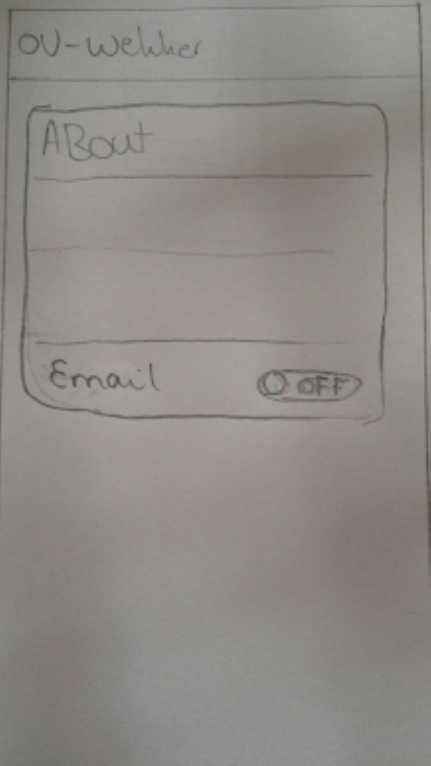 OV-Wekker
ABout
Email
OFF